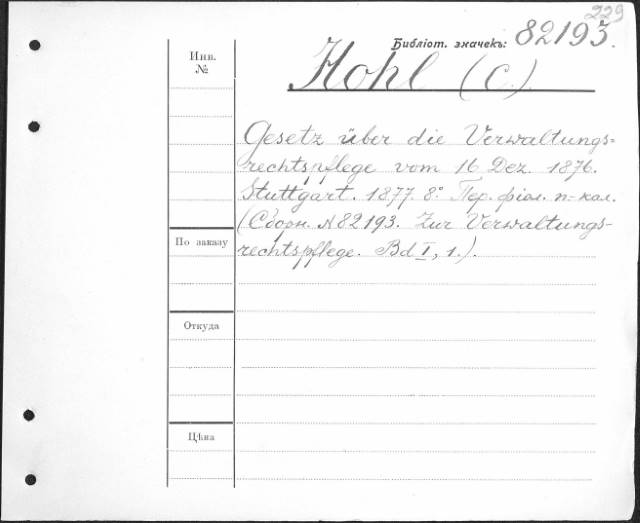 229
Библіот. значекъ: 82193.
Инв.
№
Hohl (C.)
Gesetz über die Verwaltungs=
rechtspflege vom 16 Dez. 1876.
Stuttgart. 1877. 8°. Пер. фіол. п.-кал.
(Сборн. №82193. Zur Verwaltungs-
По заказу
rechtspflege. Bd I, 1.).
Откуда
Цѣна